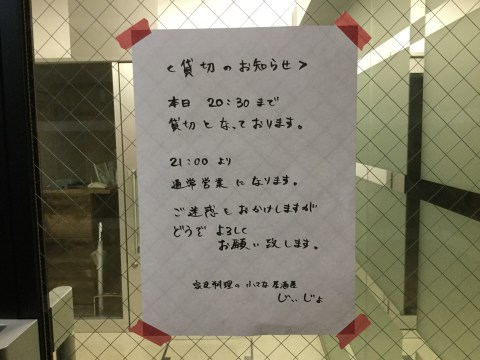 ＜貸切のお知らせ＞
本日 20:30まで
貸切となっております。
21:00より
通常営業になります。
ご迷惑をおかけしますが
どうぞ よろしく
お願い致します。
家庭料理の小さな居酒屋
じぃじょ